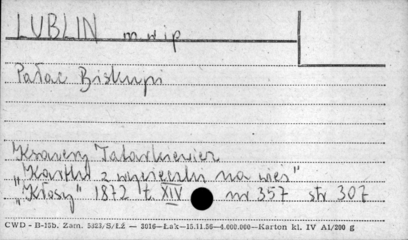 LUBLIN m w i p
Pałac Biskupi
Ksawery Tatarkiewicz
"Kartka z wycieczki na wieś"
"Kłosy" 1872 t. XIV nr 357 str 307
CWD - B-15b. Zam. 5321/S/Łź — 2016—Łok—15.11.56—4.000.000—Karton kl. IV A1/200 g